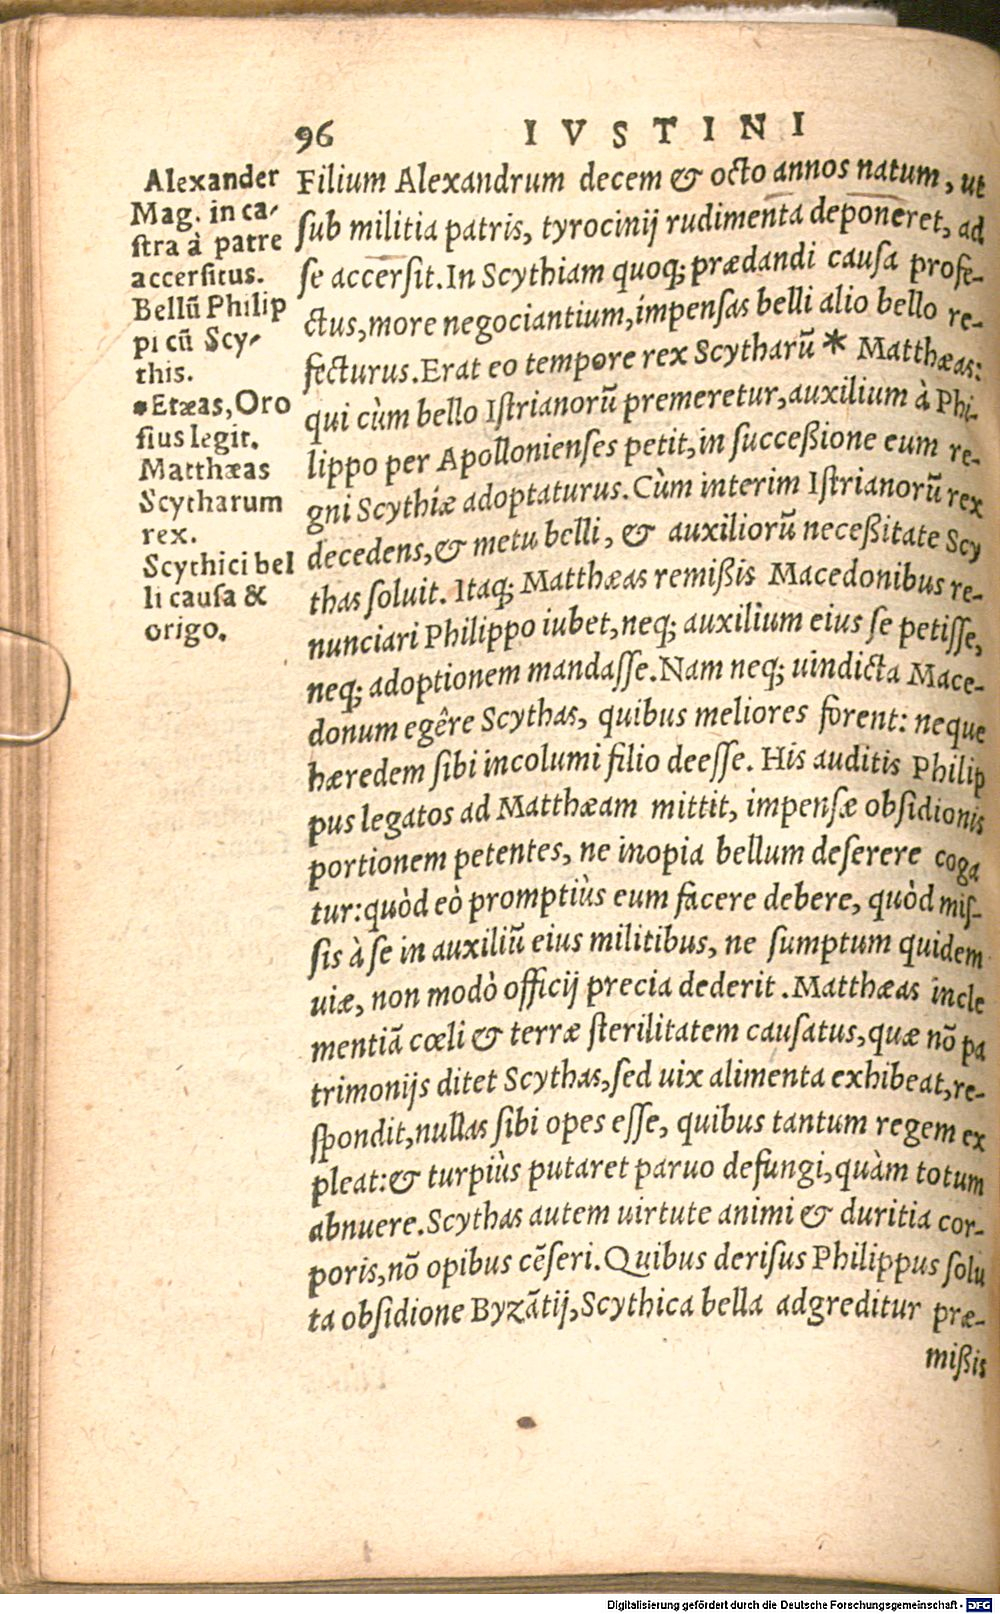 96 IVSTINI
Alexander
Mag. in ca-
stra à patre
accersitus.
Bellũ Philip
pi cũ Scy-
this.
*Etæas, Oro
sius legit.
Matthæas
Scytharum
rex.
Scythici bel
li causa &
origo.
Filium Alexandrum decem & octo annos natum, ut
sub militia patris, tyrocinij rudimenta deponeret, ad
se accersit. In Scythiam quoq; prædandi causa profe-
ctus, more negociantium, impensas belli alio bello re-
fecturus. Erat eo tempore rex Scytharũ * Matthæas:
qui cùm bello Istrianorũ premeretur, auxilium à Phi-
lippo per Apollonienses petit, in successione eum re-
gni Scythiæ adoptaturus. Cùm interim Istrianorũ rex
decedens, & metu belli, & auxiliorũ necessitate Scy
thas soluit. Itaq; Matthæas remissis Macedonibus re-
nunciari Philippo iubet, neq; auxilium eius se petisse,
neq; adoptionem mandasse. Nam neq; uindicta Mace-
donum egêre Scythas, quibus meliores forent: neque
hæredem sibi incolumi filio deesse. His auditis Philip
pus legatos ad Matthæam mittit, impensæ obsidionis
portionem petentes, ne inopia bellum deserere coga
tur: quòd eò promptiùs eum facere debere, quòd mis-
sis à se in auxiliũ eius militibus, ne sumptum quidem
uiæ, non modò officij precia dederit. Matthæas incle
mentiã cœli & terræ sterilitatem causatus, quæ nõ pa
trimonijs ditet Scythas, sed uix alimenta exhibeat, re-
spondit, nullas sibi opes esse, quibus tantum regem ex
pleat: & turpiùs putaret paruo defungi, quàm totum
abnuere. Scythas autem uirtute animi & duritia cor-
poris, nõ opibus cẽseri. Quibus derisus Philippus solu
ta obsidione Byzãtij, Scythica bella adgreditur præ-
missis
Digitalisierung gefördert durch die Deutsche Forschungsgemeinschaft - DFG